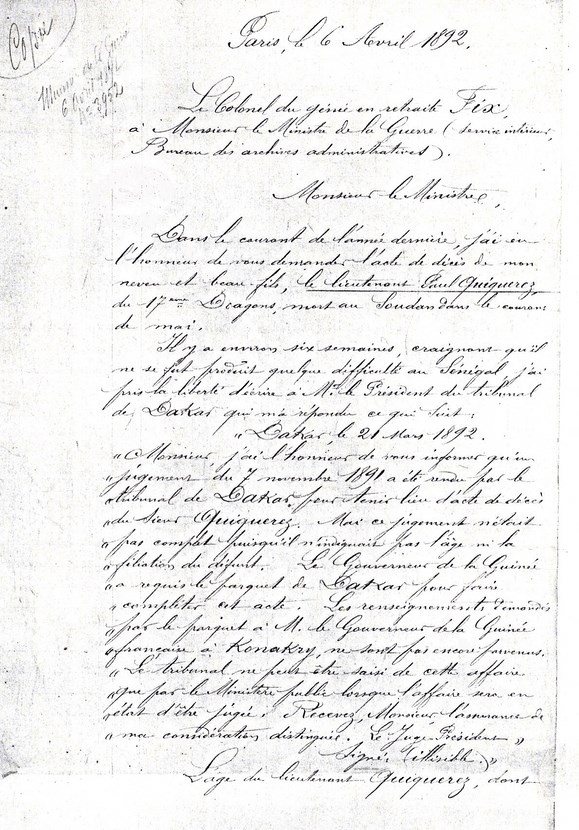 Copie
Ministère de la Guerre
6 Avril 1892
N° 3952
Paris, le 6 Avril 1892.
Le Colonel du génie en retraite Fix
à Monsieur le Ministre de la Guerre (service intérieur,
Bureau des archives administratives).
Monsieur le Ministre,
Dans le courant de l'année dernière, j'ai eu
l'honneur de vous demander l'acte de décès de mon
neveu et beau-fils, le lieutenant Paul Quiquerez,
du 17eme Dragons, mort au Soudan dans le courant
de mai.
Il y a environ six semaines, craignant qu'il
ne se fut produit quelque difficulté au Sénégal, j'ai
pris la liberté d'écrire à Mr. le Président du tribunal
de Dakar qui m'a répondu ce qui suit :
"Dakar, le 21 Mars 1892.
"Monsieur j'ai l'honneur de vous informer qu'un
"jugement du 7 novembre 1891 a été rendu par le
"tribunal de Dakar, pour tenir lieu d'acte de décès
"du sieur Quiquerez. Mais ce jugement n'était
"pas complet puisqu'il n'indiquait pas l'âge ni la
"filiation du défunt. Le Gouverneur de la Guinée
"a requis le parquet de Dakar pour faire
"compléter cet acte. Les renseignements demandés
"par le parquet à M. le Gouverneur de la Guinée
"française à Konakry, ne sont pas encore parvenus.
"Le tribunal ne peut être saisi de cette affaire
"que par le Ministère public lorsque l'affaire sera en
"état d'être jugée. Recevez, Monsieur l'assurance de
"ma considération distinguée. Le Juge Président"
Signé: (illisible.)"
L'age du lieutenant Quiquerez, dont